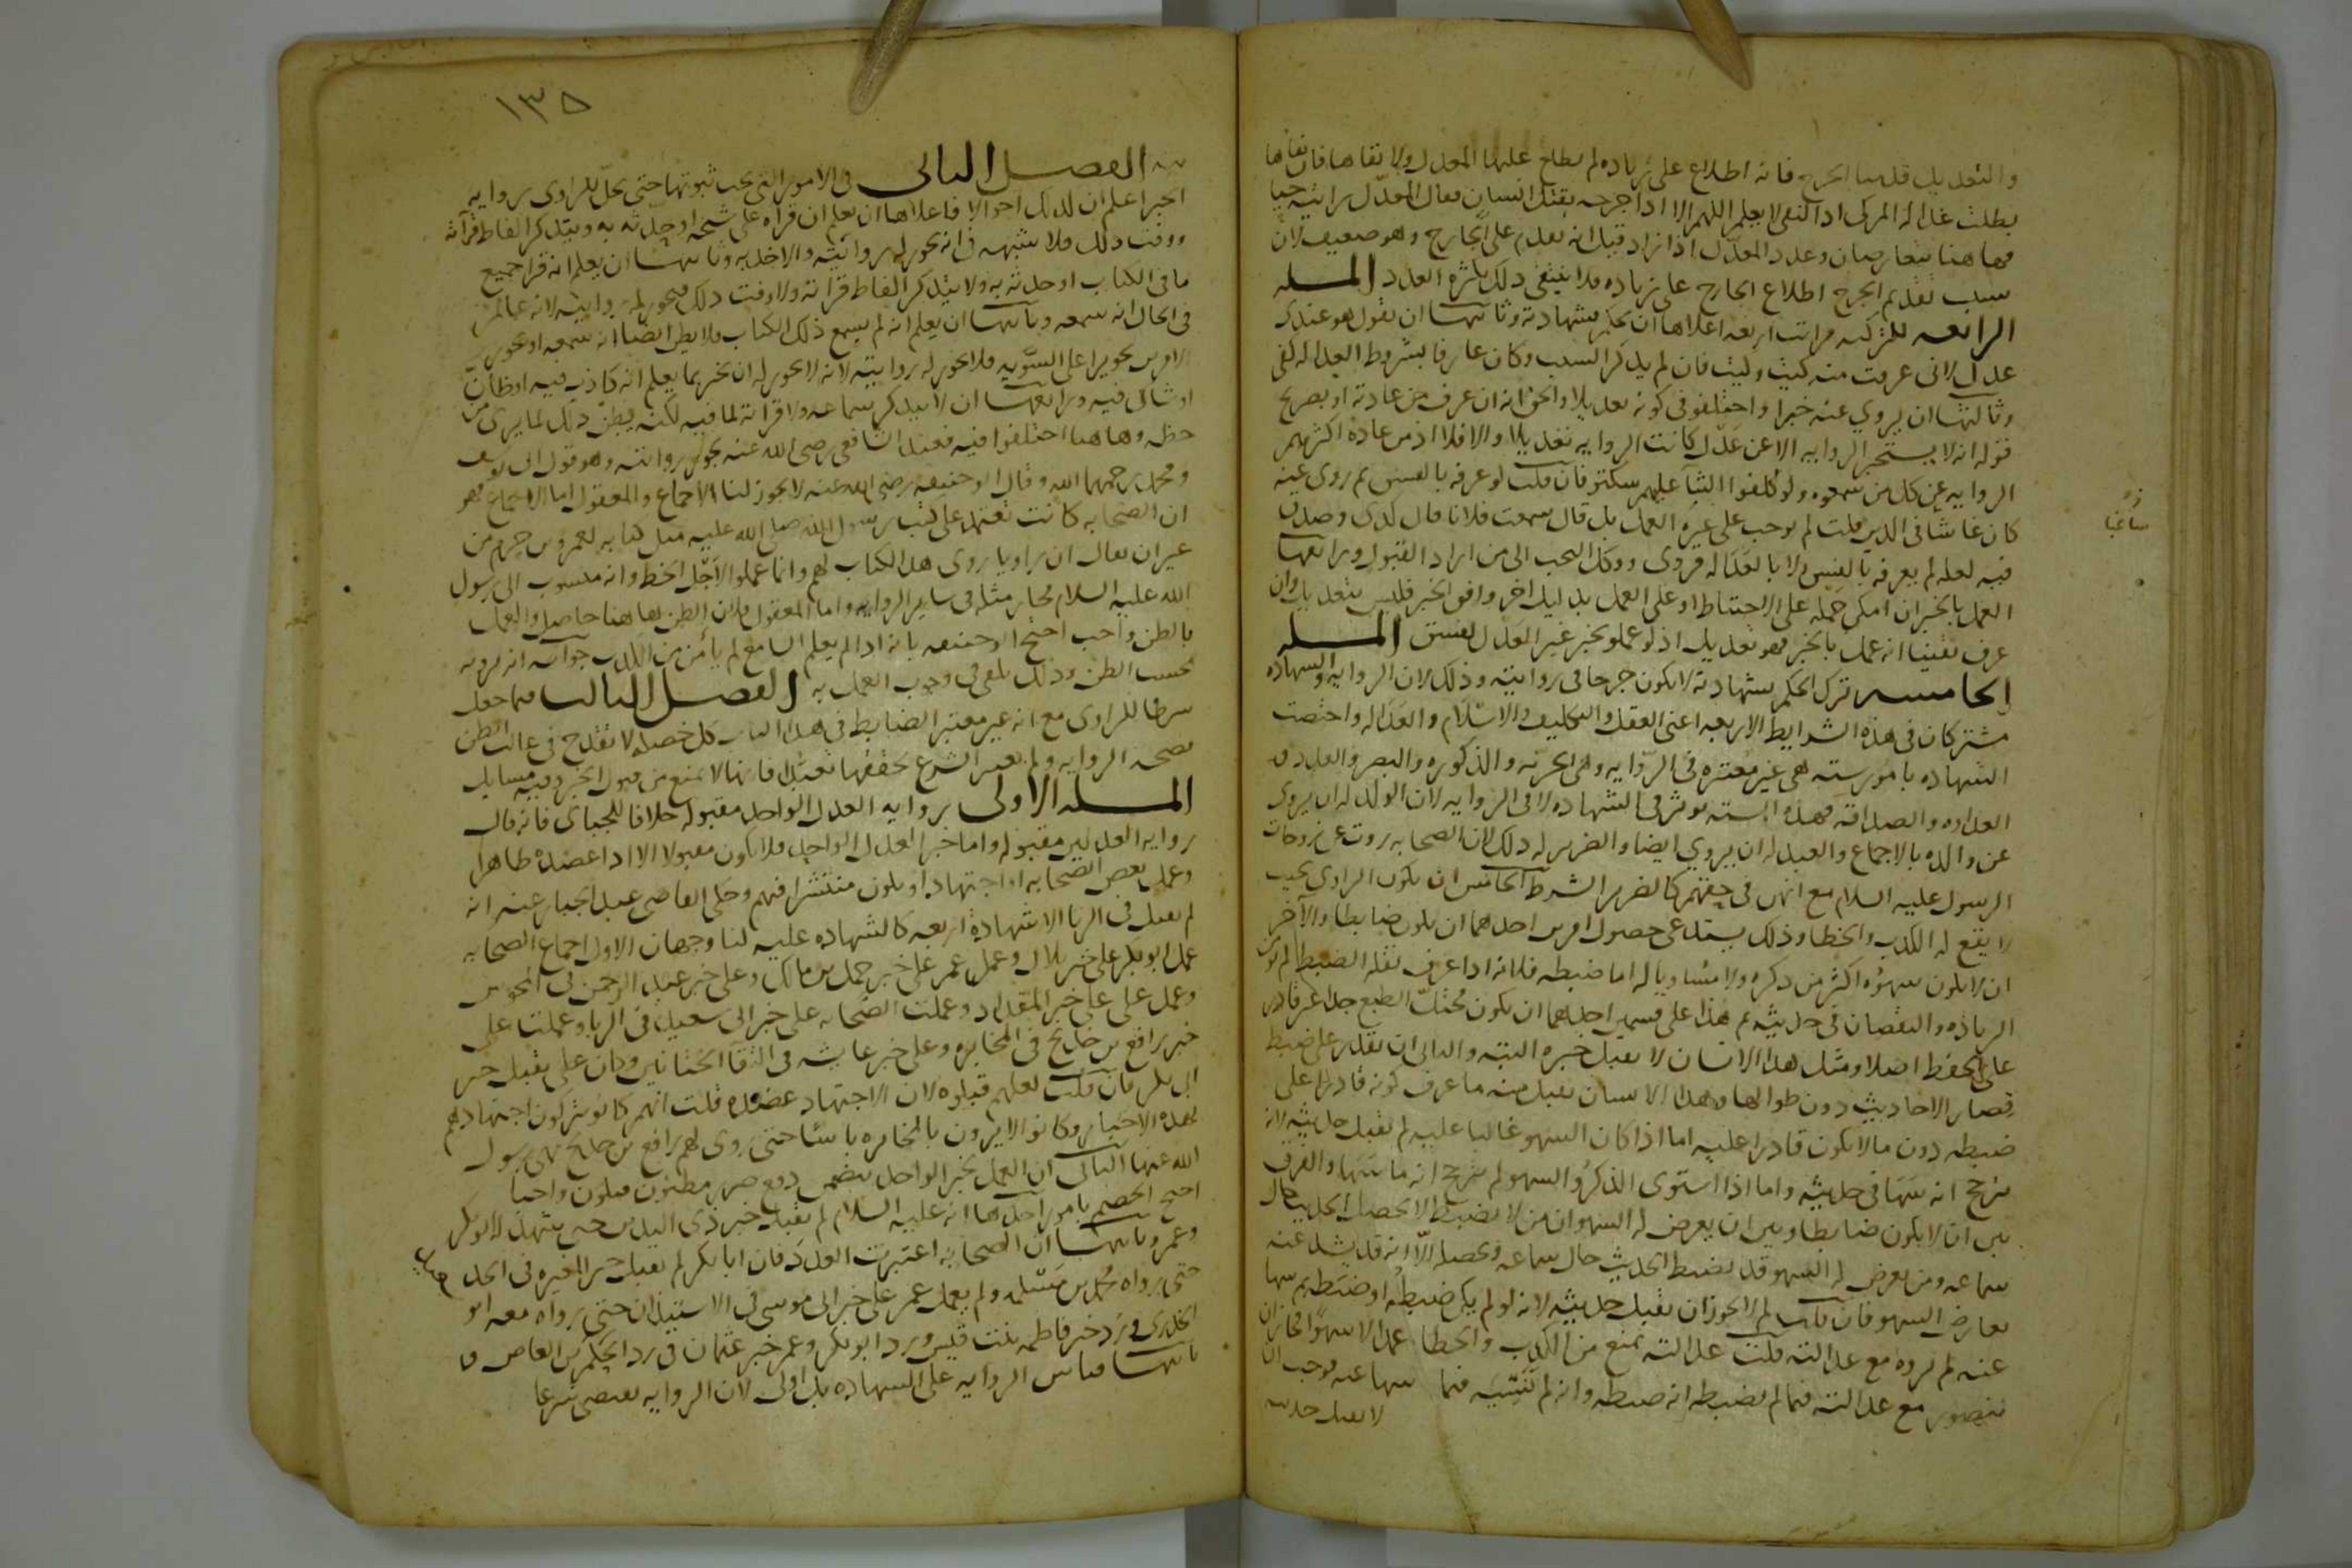 والتعديل قدمنا الجرح فانه اطلاع على زياده لم يطلع عليها المعدل ولا نفاها فان نفاها
بطلت عدالة المزكى اذ النفى لا يعلم اللهم الا اذا جرحه بقتل انسان فقال المعدل رايته حيا
فهاهنا يتعارضان وعدد المعدل اذا زاد قيل انه يقدم على الجارح وهو ضعيف لان
سبب تقديم الجرح اطلاع الجارح على زياده فلا ينتفى ذلك بكثرة العدد المسله
الرابعه للتزكيه مراتب اربعه اعلاها ان يحكم بشهادته وثانيها ان يقول هو عندى
عدل لانى عرفت منه كيت وكيت فان لم يذكر السبب وكان عارفا بشروط العداله كفى
وثالثها ان يروي عنه خبرا واختلفو في كونه تعديلا والحق انه ان عرف من عادته او بصريح
قوله انه لا يستجيز الروايه الا عن عدل كانت الروايه تعديلا والا فلا اذ من عادة اكثرهم
الروايه عن كل من سمعوه ولو كلفوا الثنا عليهم سكتو فان قلت لو عرفه بالفسق ثم روى عنه
كان غاشا في الدين قلت لم يوجب على غيره العمل بل قال سمعت فلانا قال كدى وصدق
فيه لعله لم يعرفه بالفسق ولا بالعداله فروى ووكل البحث الى من اراد القبول ورابعها
العمل بالخبر ان امكن حمله على الاحتياط او على العمل بدليل اخر وافق الخبر فليس بتعديل وان
عرف يقينا انه عمل بالخبر فهو تعديل اذ لو عمل بخبر غير العدل لفسق المسله
الخامسه ترك الحكم بشهادته لا يكون جرحا في روايته وذلك لان الروايه والشهاده
مشتركان في هذه الشرايط الاربعه اعنى العقل والتكليف والاسلام والعداله واختصت
الشهاده بامور سته هي غير معتبره فى الروايه وهى الحريه والذكوره والبصر والعدد و
العداوه والصداقه فهذه السته توثر في الشهاده لا في الروايه لان الولد له ان يروى
عن والده بالاجماع والعبد له ان يروي ايضا والضرير له ذلك لان الصحابه روت عن زوجات
الرسول عليه السلام مع انهم في حقهم كالضرير الشرط الخامس ان يكون الراوي بحيث
لا يقع له الكذب والخطا وذلك يستدعى حصول امرين احدهما ان يكون ضابطا والآخر
ان لا يكون سهوه اكثر من ذكره ولا مساويا له اما ضبطه فلانه اذا عرف بقلة الضبط لم تومن
الزياده والنقصان في حديثه ثم هذا على قسمين احدهما ان يكون مختل الطبع جدا غير قادر
على الحفظ اصلا ومثل هذا الانسان لا يقبل خبره البته والثانى ان يقدر على ضبط
قصار الاحاديث دون طوالها وهذا الانسان يقبل منه ما عرف كونه قادرا على
ضبطه دون ما لا يكون قادرا عليه اما اذا كان السهو غالبا عليه لم يقبل حديثه لانه
يترجح انه سها في حديثه واما اذا استوى الذكر والسهو لم يترجح انه ما سها والفرق
بين ان لا يكون ضابطا وبين ان يعرض له السهو ان من لا يضبط لا يحصل الحديث حال
سماعه ومن يعرض له السهو قد يضبط الحديث حال سماعه وتحصيله الا انه قد يشذ عنه
بعارض السهو فان قلت لم لا يجوز ان يقبل حديثه لانه لو لم يكن ضبطه او ضبطه ثم سها
عنه لم يروه مع عدالته قلت عدالته تمنع من الكذب والخطا عمدا لا سهوا فجاز ان
يتصور مع عدالته فيما لم يضبطه انه ضبطه وانه لم يسه فيما سها عنه فوجب ان
لا يقبل حديثه
١٣٥
الفصل الثانى فى الامور التى يجب ثبوتها حتى يحل للراوى رواية
الخبر اعلم ان لذلك احوالا فاعلاها ان يعلم ان قراه على شيخه او حدثه به ويتذكر الفاظ قراءته
ووقت ذلك فلا شبهه في انه يجوز له روايته والاخذ به وثانيها ان يعلم انه قرا جميع
ما في الكتاب او حدثه به ولا يتذكر الفاظ قراته ولا وقت ذلك فيجوز له روايته لانه عالم
في الحال انه سمعه وثالثها ان يعلم انه لم يسمع ذلك الكتاب ولا يظن ايضا انه سمعه او يجوز
الامرين تجويزا على السويه فلا يجوز له روايته لانه لا يجوز له ان يخبر بما يعلم انه كاذب فيه او ظان
او شاك فيه ورابعها ان لا يتذكر سماعه ولا قراته لما فيه لكنه يظن ذلك لما يرى من
خطه وهاهنا اختلفوا فيه فعند الشافعى رضى الله عنه يجوز روايته وهو قول ابى يوسف
ومحمد رحمهما الله وقال ابو حنيفه رضى الله عنه لا يجوز لنا الاجماع والمعقول اما الاجماع فهو
ان الصحابه كانت تعتمد على كتب رسول الله صلى الله عليه مثل كتابه لعمرو بن حزم من
غير ان يقال ان راويا روى هذا الكتاب لهم وانما عملوا لاجل الخط وانه منسوب الى رسول
الله عليه السلام فجاز مثله فى ساير الروايه واما المعقول فلان الظن هاهنا حاصل والعمل
بالظن واجب احتج ابو حنيفه بانه اذا لم يعلم السامع لم يأمن من الكذب جوابه انه يرويه
بحسب الظن وذلك يكفى فى وجوب العمل به الفصل الثالث فيما جعل
شرطا للراوى مع انه غير معتبر الضابط في هذا الباب كل خصله لا تقدح في غالب الظن
بصحة الروايه ولم يعتبر الشرع تحققها تعبدا فانها لا تمنع من قبول الخبر وفيه مسايل
المسله الاولى رواية العدل الواحد مقبوله خلافا للجباى فانه قال
رواية العدلين مقبوله واما خبر العدل الواحد فلا يكون مقبولا الا اذا عضده ظاهر
وعمل بعض الصحابه او اجتهاد او يكون منتشرا فيهم وحكى القاضى عبد الجبار عنه انه
لم يقبل فى الزنا الا شهادة اربعه كالشهاده عليه لنا وجهان الاول اجماع الصحابه
عمل ابو بكر على خبر بلال وعمل عمر على خبر حمل بن مالك وعلى خبر عبد الرحمن فى المجوس
وعمل على على خبر المقداد وعملت الصحابه على خبر ابى سعيد فى الربا وعملت على
خبر رافع بن خديج فى المخابره وعلى خبر عايشه فى التقآ الختانين وكان على يقبل خبر
ابى بكر فان قلت لعلهم قبلوه لان الاجتهاد عضده قلت انهم كانو يتركون اجتهادهم
لهذه الاخبار وكانو لا يرون بالمخابره باسا حتى روى لهم رافع بن خديج نهى رسول
الله عنها الثانى ان العمل بخبر الواحد يتضمن دفع ضرر مظنون فيكون واجبا
احتج الخصم بامور احدها انه عليه السلام لم يقبل خبر ذى اليدين حتى شهد له ابو بكر
وعمر وثانيها ان الصحابه اعتبرت العدد فان ابا بكر لم يقبل خبر المغيره فى الجد
حتى رواه محمد بن مسلمه ولم يعمل عمر على خبر ابى موسى فى الاستيذان حتى رواه معه ابو
الخدرى ورد خبر فاطمه بنت قيس ورد ابو بكر وعمر خبر عثمان فى رد الحكم بن العاص و
ثالثها قياس الروايه على الشهاده بل اولى لان الروايه تقتضى شرعا